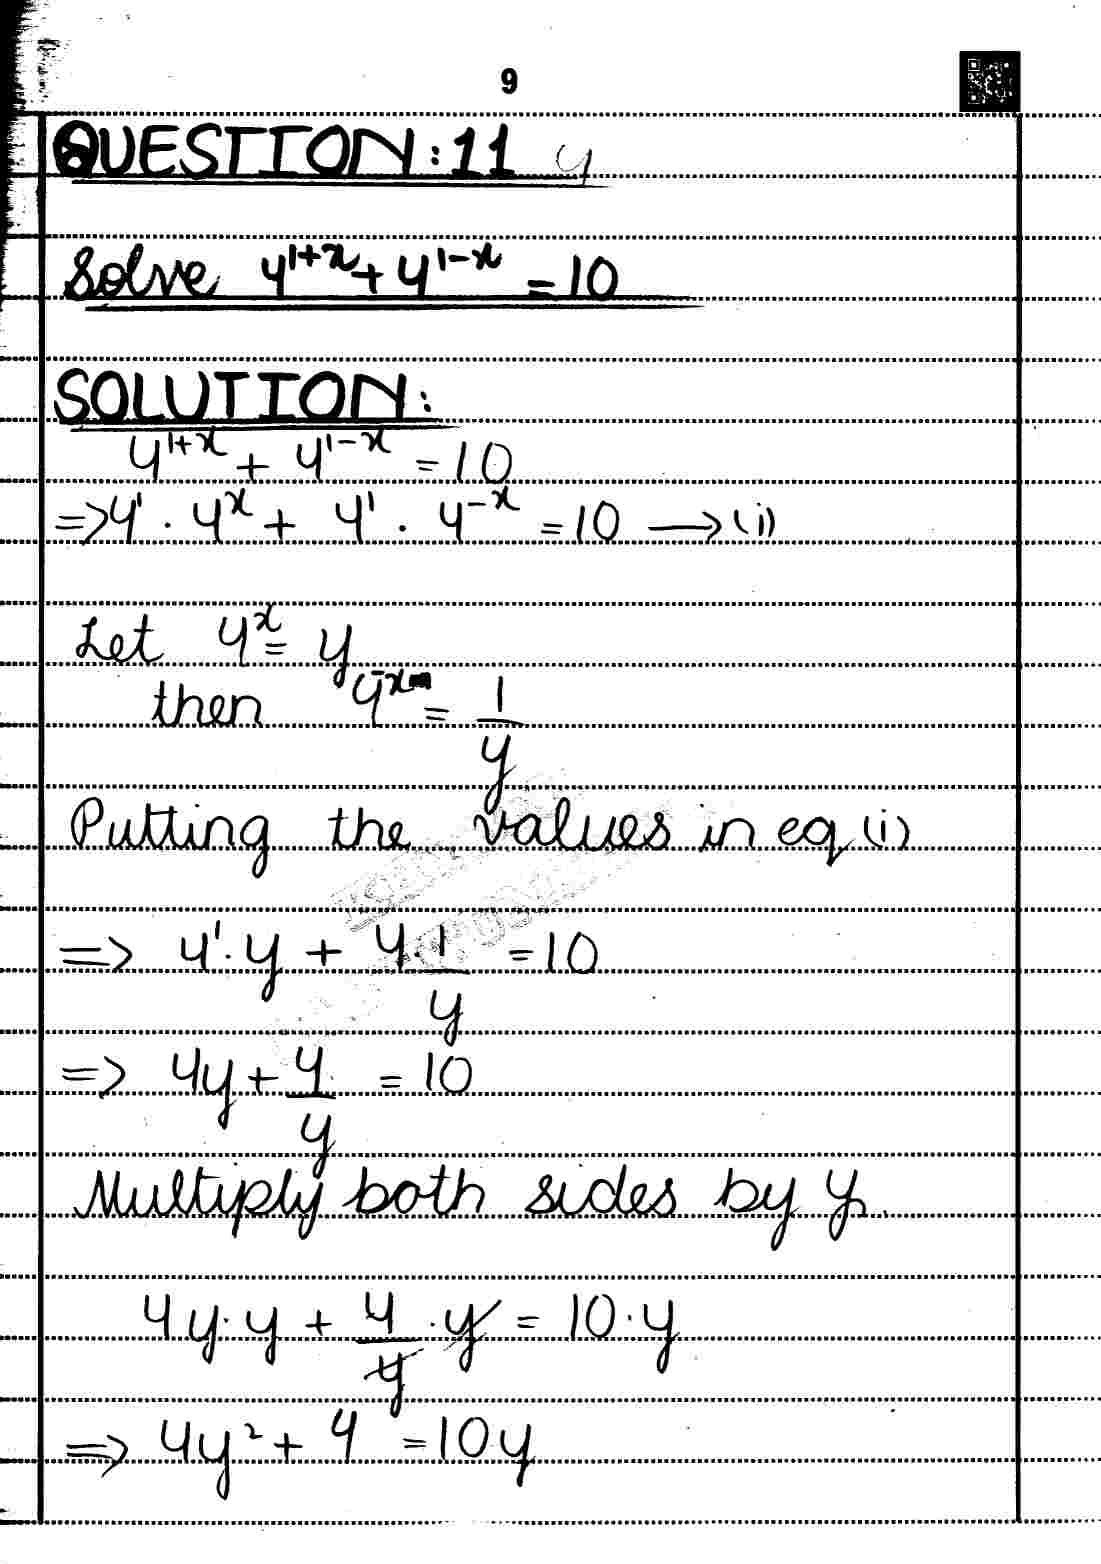 9
QUESTION:11 y
Solve 4^{1+x} + 4^{1-x} = 10
SOLUTION:
4^{1+x} + 4^{1-x} = 10
=> 4^1 · 4^x + 4^1 · 4^{-x} = 10 → (i)
Let 4^x = y
then 4^{-x} = 1/y
Putting the values in eq (i)
=> 4^1 · y + 4·1/y = 10
=> 4y + 4/y = 10
Multiply both sides by y.
4y·y + 4/y · y = 10·y
=> 4y² + 4 = 10y